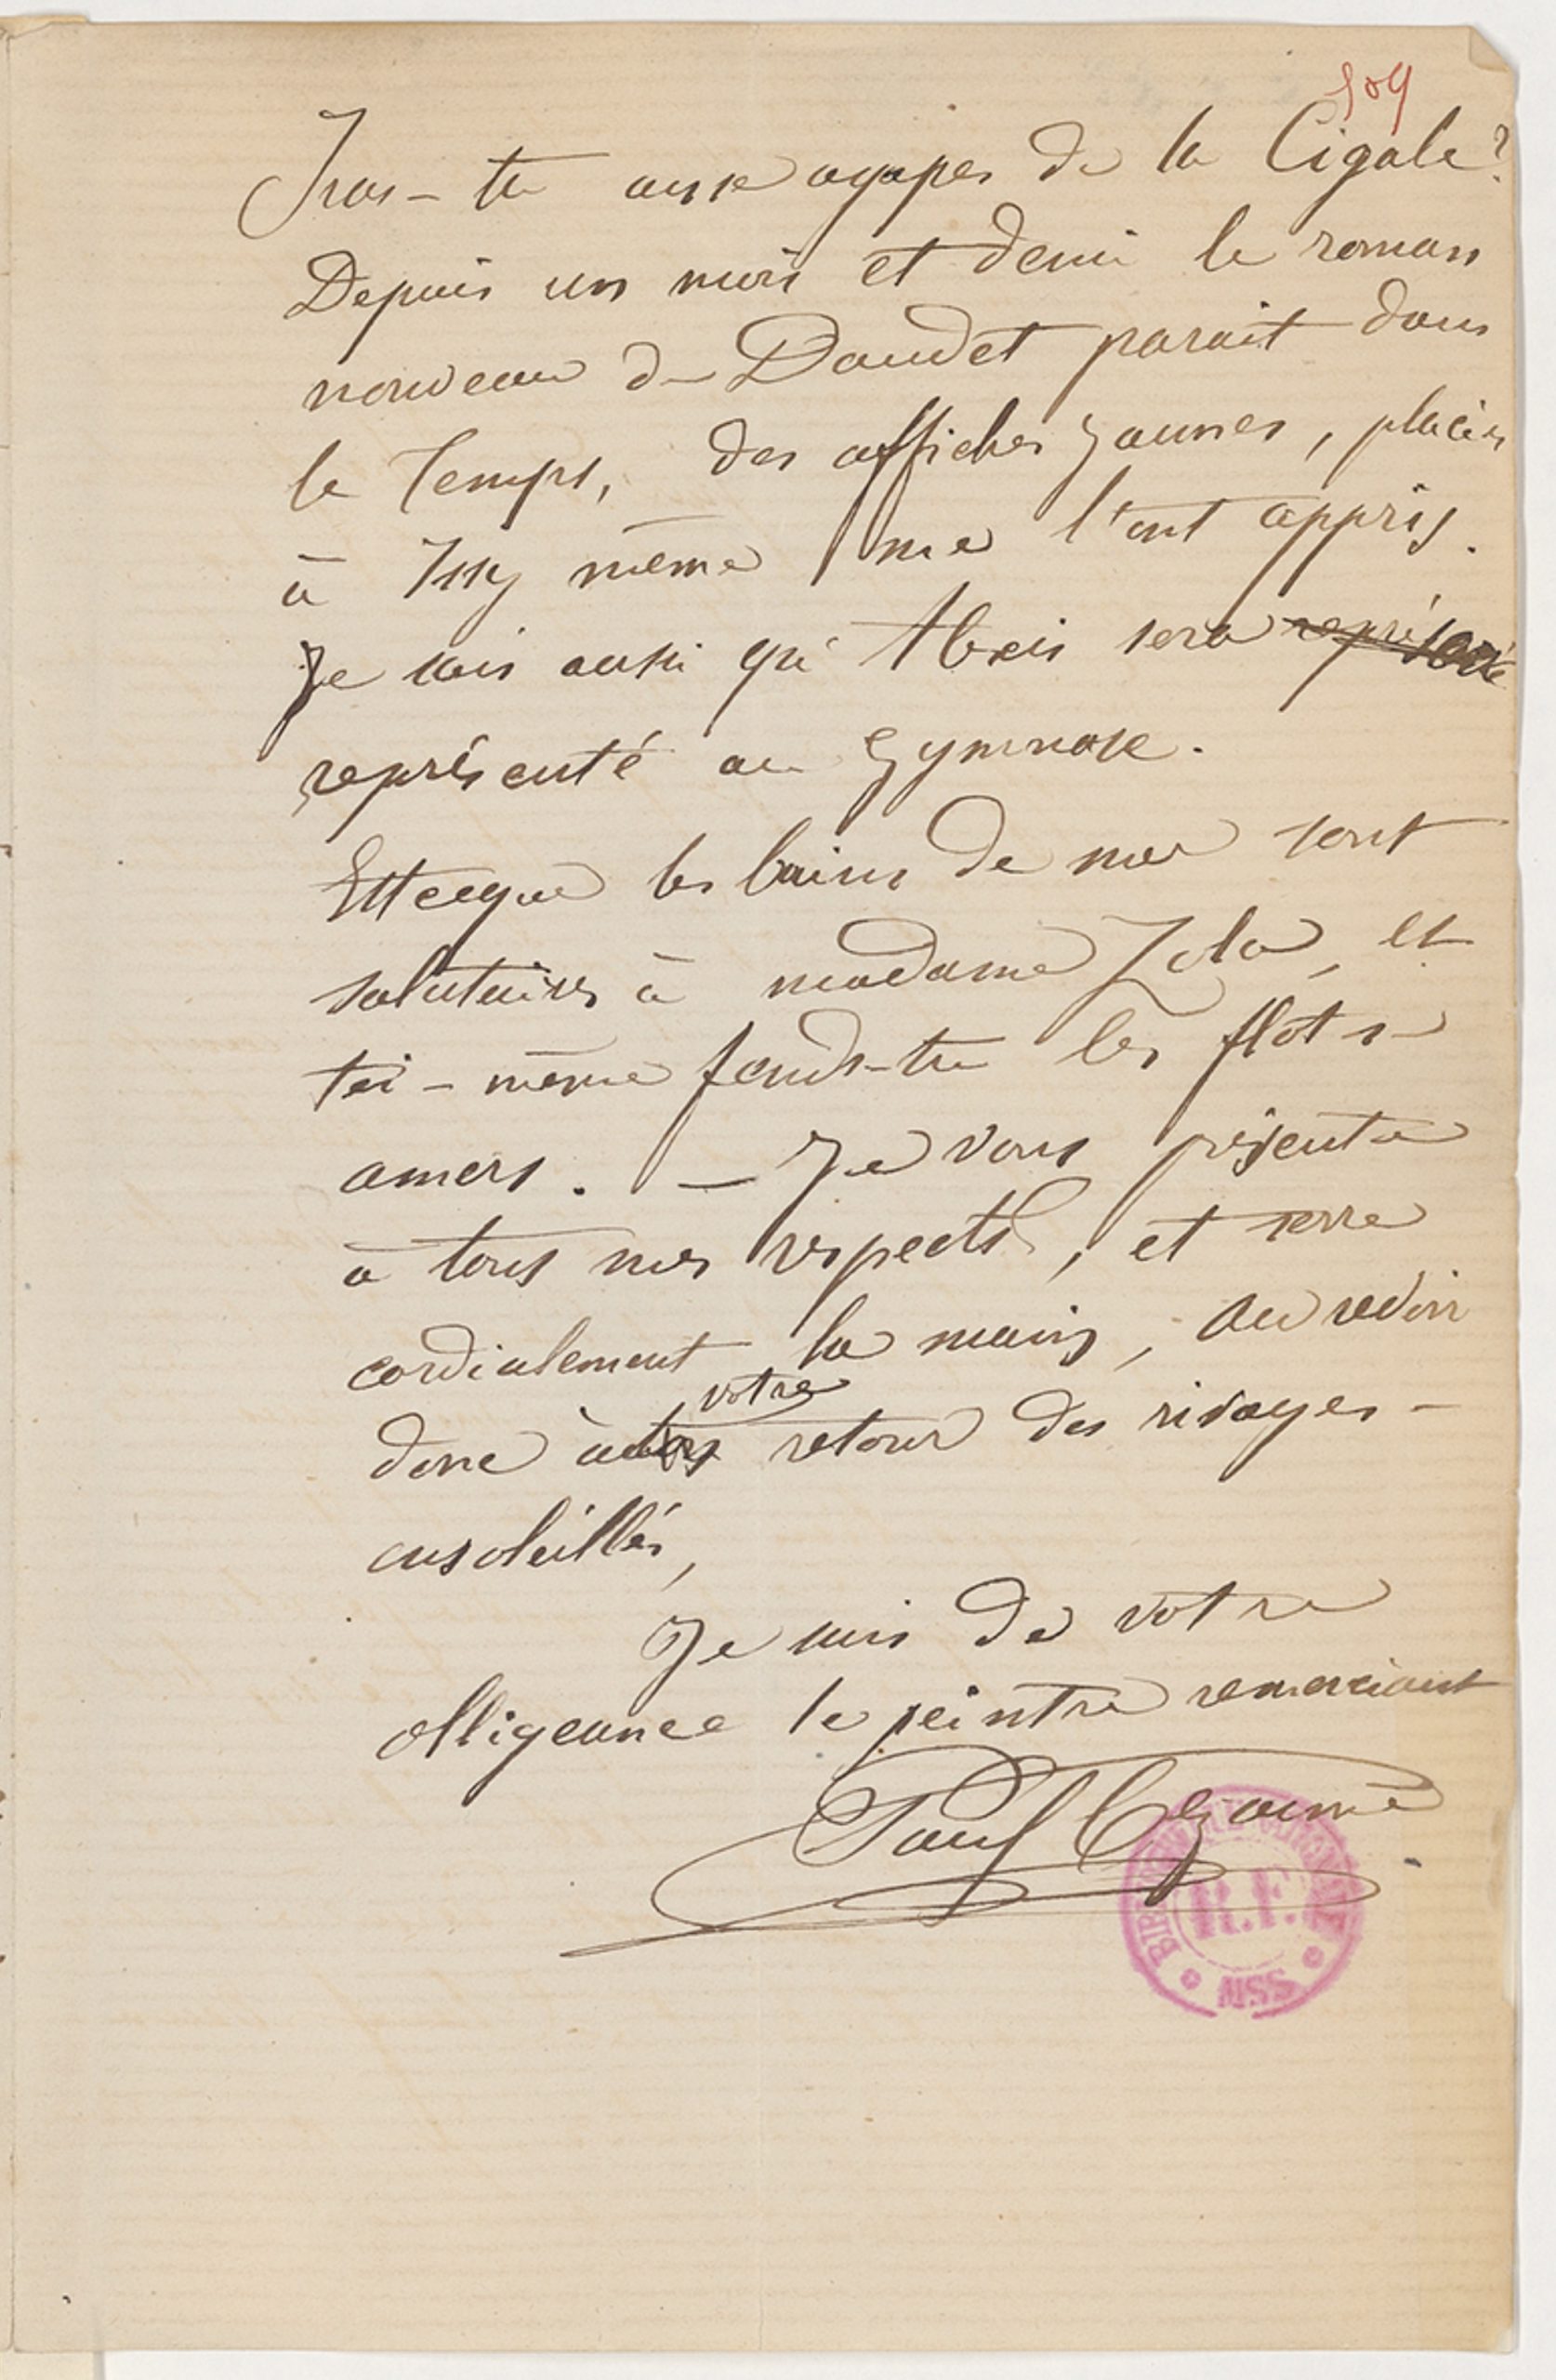 509
Iras-tu aux agapes de la Cigale?
Depuis un mois et demi le roman
nouveau de Daudet parait dans
le Temps, des affiches jaunes, placées
à Issy même me l'ont appris.
Je sais aussi qu'Alexis sera représenté
représenté au Gymnase.
Estceque les bains de mer sont
salutaires à madame Zola, et
toi-même fends-tu les flots
amers. — Je vous présente
à tous mes respects, et serre
cordialement la main, au revoir
votre
donc à retour des rivages
ensoleillés,
Je suis de votre
obligeance le peintre remerciant
Paul Cezanne
R.F.
MSS